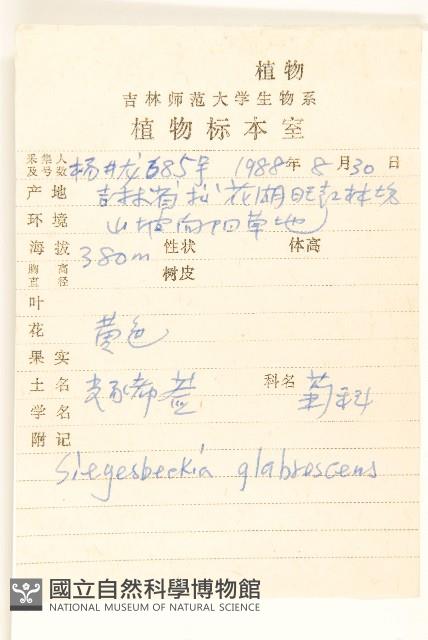 植物
吉林师范大学生物系
植物标本室
采集人及号数 杨井友 685号 1988年 8月30日
产地 吉林省松花湖 红林场
环境 山坡向阳草地
海拔 380m 性状 体高
胸高直径 树皮
叶
花 黄色
果实
土名 科名 菊科
学名
附记
Siegesbeckia glabrescens
國立自然科學博物館
NATIONAL MUSEUM OF NATURAL SCIENCE